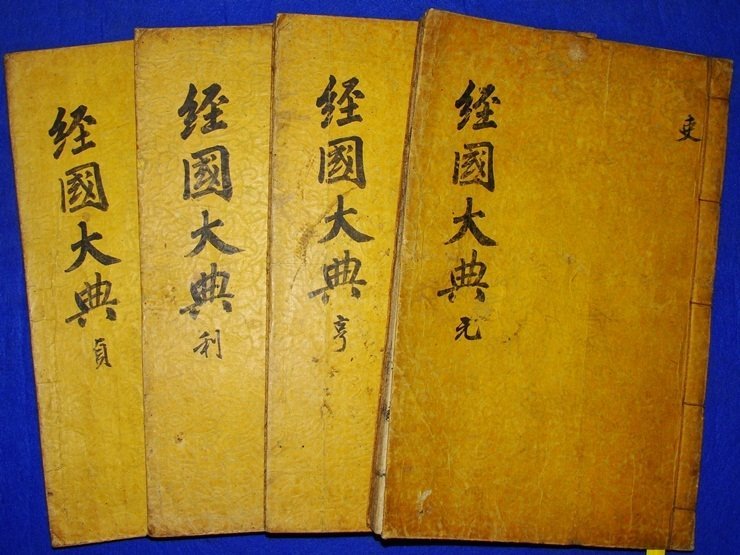 吏
経國大典 元
経國大典 亨
経國大典 利
経國大典 貞